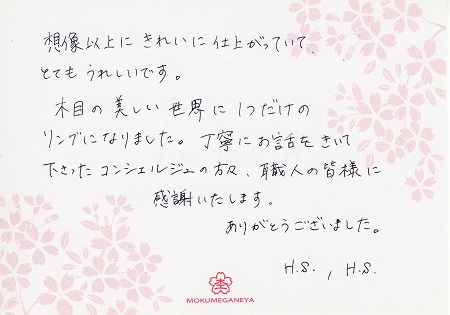 想像以上に きれいに 仕上がっていて
とても うれしいです。
木目の 美しい 世界に 1つだけの
リングになりました。丁寧に お話を きいて
下さった コンシェルジュの 方々、職人の 皆様に
感謝いたします。
ありがとうございました。
H.S. , H.S.
MOKUMEGANEYA